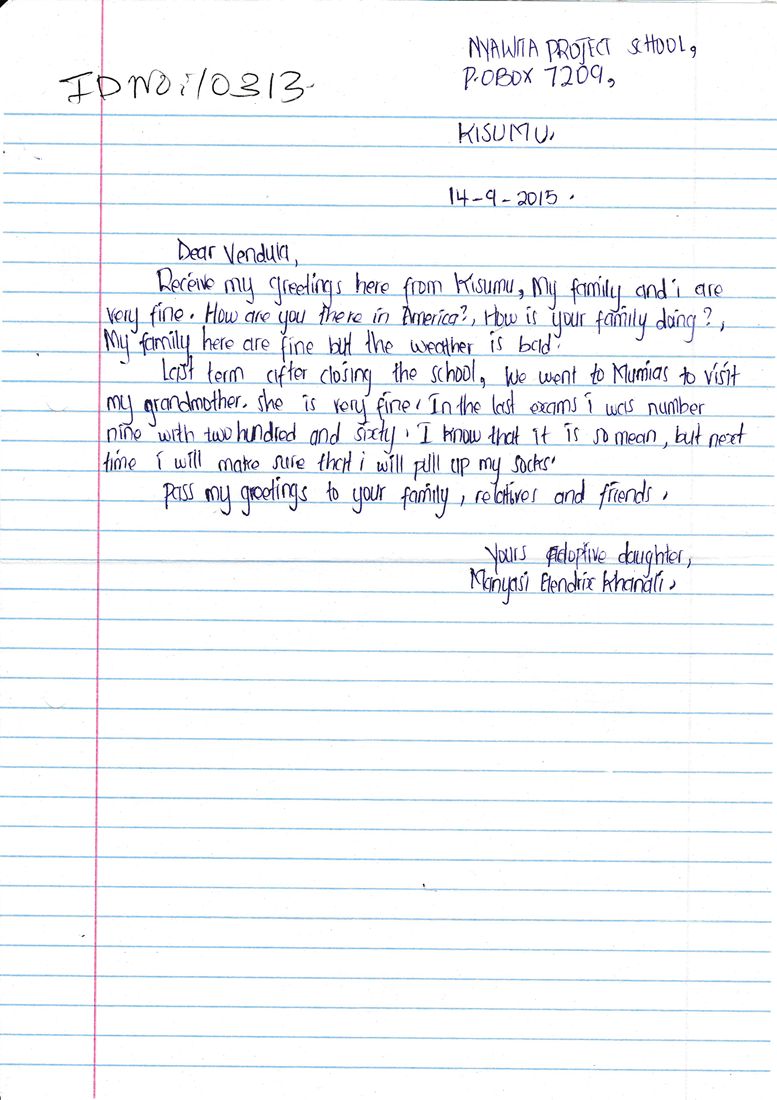 NYAWITA PROJECT SCHOOL,
P.O BOX 7209,
ID NO:/0313.
KISUMU.
14-9-2015.
Dear Vendula,
Receive my greetings here from Kisumu, My family and i are
very fine. How are you there in America?, How is your family doing?,
My family here are fine but the weather is bad.
Last term after closing the school, we went to Mumias to visit
my grandmother. she is very fine. In the last exams i was number
nine with two hundred and sixty. I know that it is so mean, but next
time i will make sure that i will pull up my socks.
pass my greetings to your family, relatives and friends.
Yours Adoptive daughter,
Manyasi Elendrix Khanali.